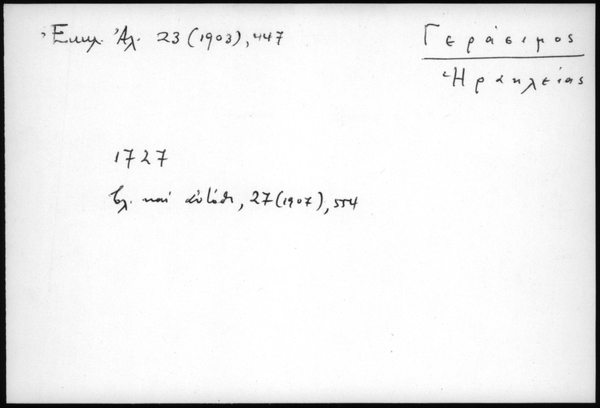 Ἐκκλ. Ἀλ. 23 (1903), 447
Γεράσιμος
Ἡρακλείας
1727
βλ. καί αὐτόθι, 27 (1907), 554